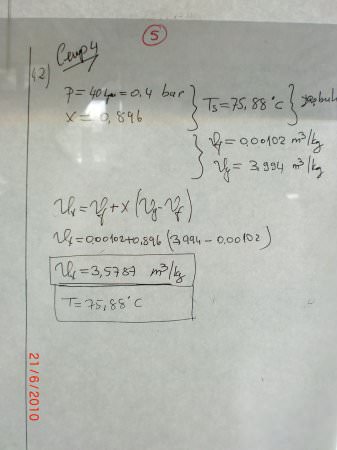 5
4.2)
P = 40 kPa = 0,4 bar
x = 0,896
Ts = 75,88°C
vf = 0,00102 m³/kg
vg = 3,994 m³/kg
v1 = vf + x (vg - vf)
v1 = 0,00102 + 0,896 (3,994 - 0,00102)
v1 = 3,5787 m³/kg
T = 75,88°C
21/6/2010